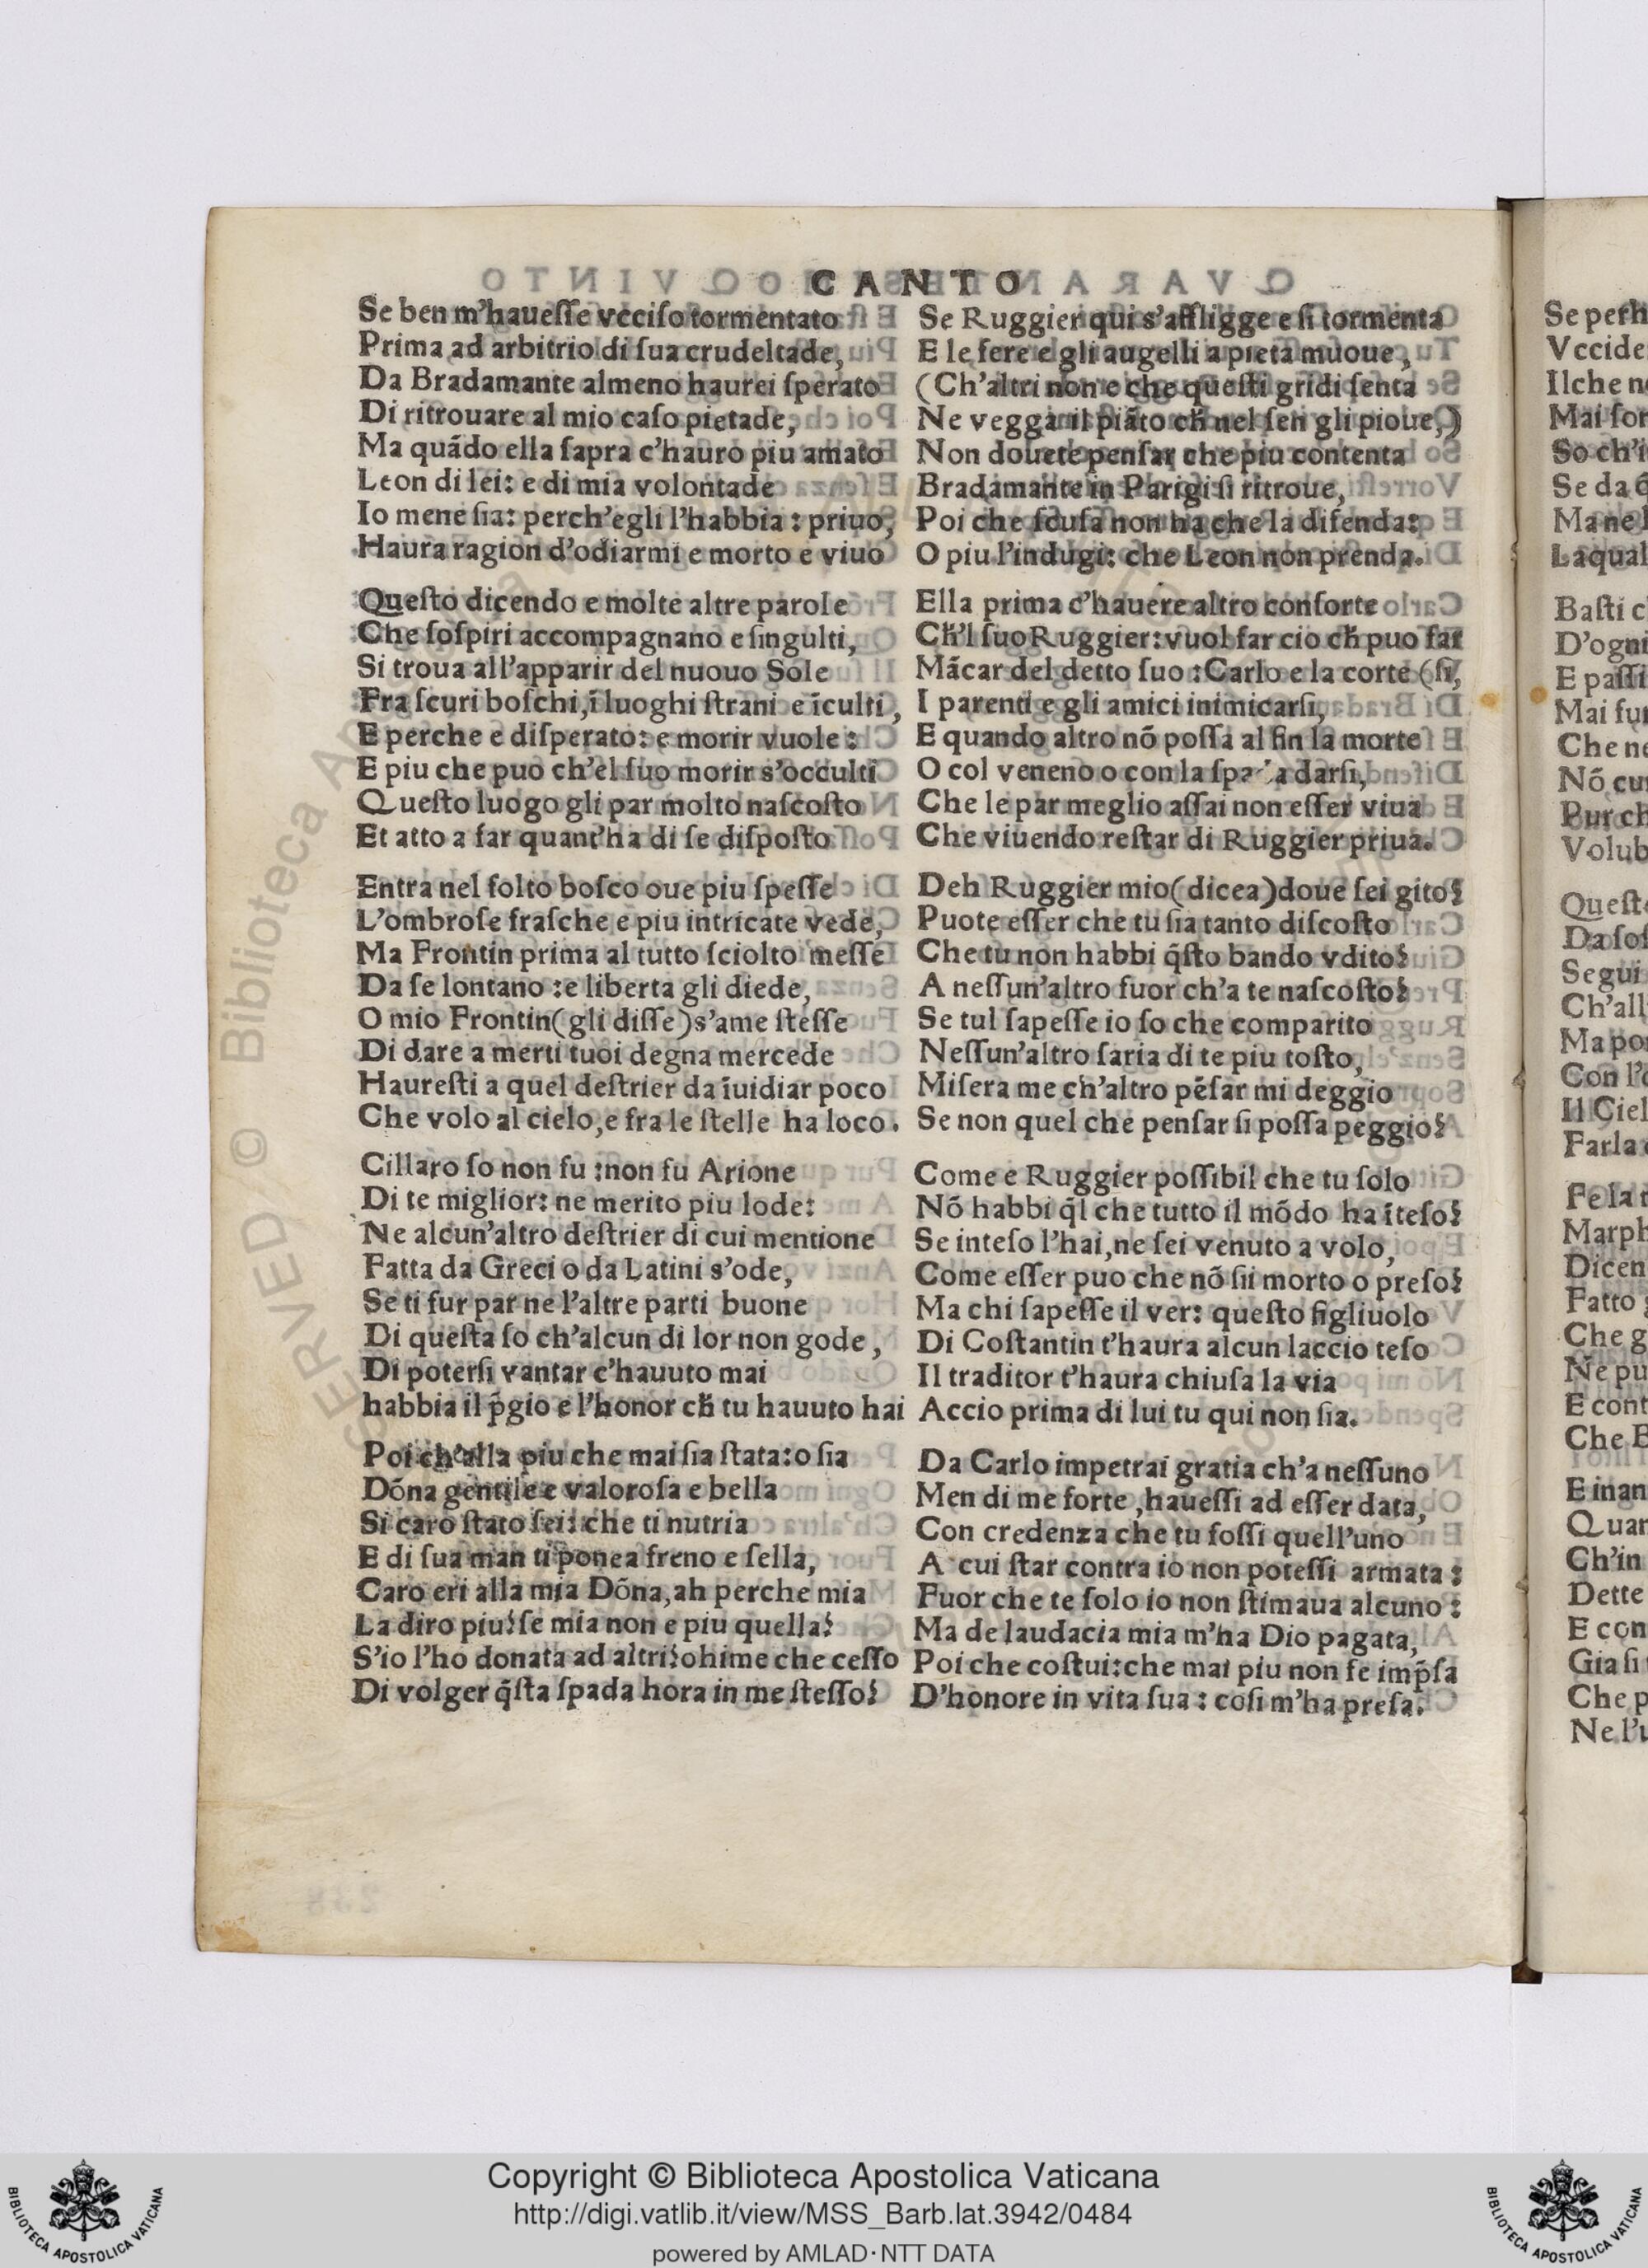 CANTO
Se ben m'haueſſe vcciſo tormentato
Prima ad arbitrio di ſua crudeltade,
Da Bradamante almeno haurei ſperato
Di ritrouare al mio caſo pietade,
Ma quãdo ella ſapra c'hauro piu amato
Leon di lei: e di mia volontade
Io mene ſia: perch'egli l'habbia: priuo,
Haura ragion d'odiarmi e morto e viuo
Queſto dicendo e molte altre parole
Che ſoſpiri accompagnano e ſingulti,
Si troua all'apparir del nuouo Sole
Fra ſcuri boſchi, ĩ luoghi ſtrani e ĩculti,
E perche e diſperato: e morir vuole:
E piu che puo ch'el ſuo morir s'occulti
Queſto luogo gli par molto naſcoſto
Et atto a far quant'ha di ſe diſpoſto
Entra nel folto boſco oue piu ſpeſſe
L'ombroſe fraſche e piu intricate vede,
Ma Frontin prima al tutto ſciolto meſſe
Da ſe lontano: e liberta gli diede,
O mio Frontin (gli diſſe) s'ame ſteſſe
Di dare a merti tuoi degna mercede
Haureſti a quel deſtrier da ĩuidiar poco
Che volo al cielo, e fra le ſtelle ha loco.
Cillaro ſo non fu: non fu Arione
Di te miglior: ne merito piu lode:
Ne alcun'altro deſtrier di cui mentione
Fatta da Greci o da Latini s'ode,
Se ti fur par ne l'altre parti buone
Di queſta ſo ch'alcun di lor non gode,
Di poterſi vantar c'hauuto mai
habbia il p̃gio e l'honor ch̃ tu hauuto hai
Poi ch'alla piu che mai ſia ſtata: o ſia
Dõna gentile e valoroſa e bella
Si caro ſtato ſei: che ti nutria
E di ſua man ti ponea freno e ſella,
Caro eri alla mia Dõna, ah perche mia
La diro piu? ſe mia non e piu quella?
S'io l'ho donata ad altri? ohime che ceſſo
Di volger q̃ſta ſpada hora in me ſteſſo?
Se Ruggier qui s'affligge e ſi tormenta
E le fere e gli augelli a pieta muoue,
(Ch'altri non e che queſti gridi ſenta
Ne vegga il piãto ch̃ nel ſen gli pioue,)
Non douete penſar che piu contenta
Bradamante in Parigi ſi ritroue,
Poi che ſcuſa non ha che la difenda:
O piu l'indugi: che Leon non prenda.
Ella prima c'hauere altro conſorte
Ch̃'l ſuo Ruggier: vuol far cio ch̃ puo far
Mãcar del detto ſuo: Carlo e la corte (ſi,
I parenti e gli amici inimicarſi,
E quando altro nõ poſſa al fin la morte
O col veneno o con la ſpada darſi,
Che le par meglio aſſai non eſſer viua
Che viuendo reſtar di Ruggier priua.
Deh Ruggier mio (dicea) doue ſei gito?
Puote eſſer che tu ſia tanto diſcoſto
Che tu non habbi q̃ſto bando vdito?
A neſſun'altro fuor ch'a te naſcoſto?
Se tul ſapeſſe io ſo che comparito
Neſſun'altro ſaria di te piu toſto,
Miſera me ch'altro pẽſar mi deggio
Se non quel che penſar ſi poſſa peggio?
Come e Ruggier poſſibil che tu ſolo
Nõ habbi q̃l che tutto il mõdo ha ĩteſo?
Se inteſo l'hai, ne ſei venuto a volo,
Come eſſer puo che nõ ſii morto o preſo?
Ma chi ſapeſſe il ver: queſto figliuolo
Di Coſtantin t'haura alcun laccio teſo
Il traditor t'haura chiuſa la via
Accio prima di lui tu qui non ſia.
Da Carlo impetrai gratia ch'a neſſuno
Men di me forte, haueſſi ad eſſer data,
Con credenza che tu foſſi quell'uno
A cui ſtar contra io non poteſſi armata:
Fuor che te ſolo io non ſtimaua alcuno:
Ma de laudacia mia m'ha Dio pagata,
Poi che coſtui: che mai piu non fe imp̃ſa
D'honore in vita ſua: coſi m'ha preſa.
Se perh
Vccide
Ilche n
Mai for
So ch'i
Se da
Ma ne l
Laqual
Baſti c
D'ogni
E paſſi
Mai fu
Che ne
Nõ cu
Pur ch
Volub
Queſt
Da ſoſ
Segui
Ch'all
Ma po
Con l'
Il Ciel
Farla
Fe la
Marph
Dicen
Fatto
Che g
Ne pu
E cont
Che B
E inan
Quan
Ch'in
Dette
E con
Gia ſi
Che p
Ne l'u
RESERVED © Biblioteca Ap
Copyright © Biblioteca Apostolica Vaticana
http://digi.vatlib.it/view/MSS_Barb.lat.3942/0484
powered by AMLAD·NTT DATA
BIBLIOTECA APOSTOLICA VATICANA
BIBLIOTECA APOSTOLICA VATICANA